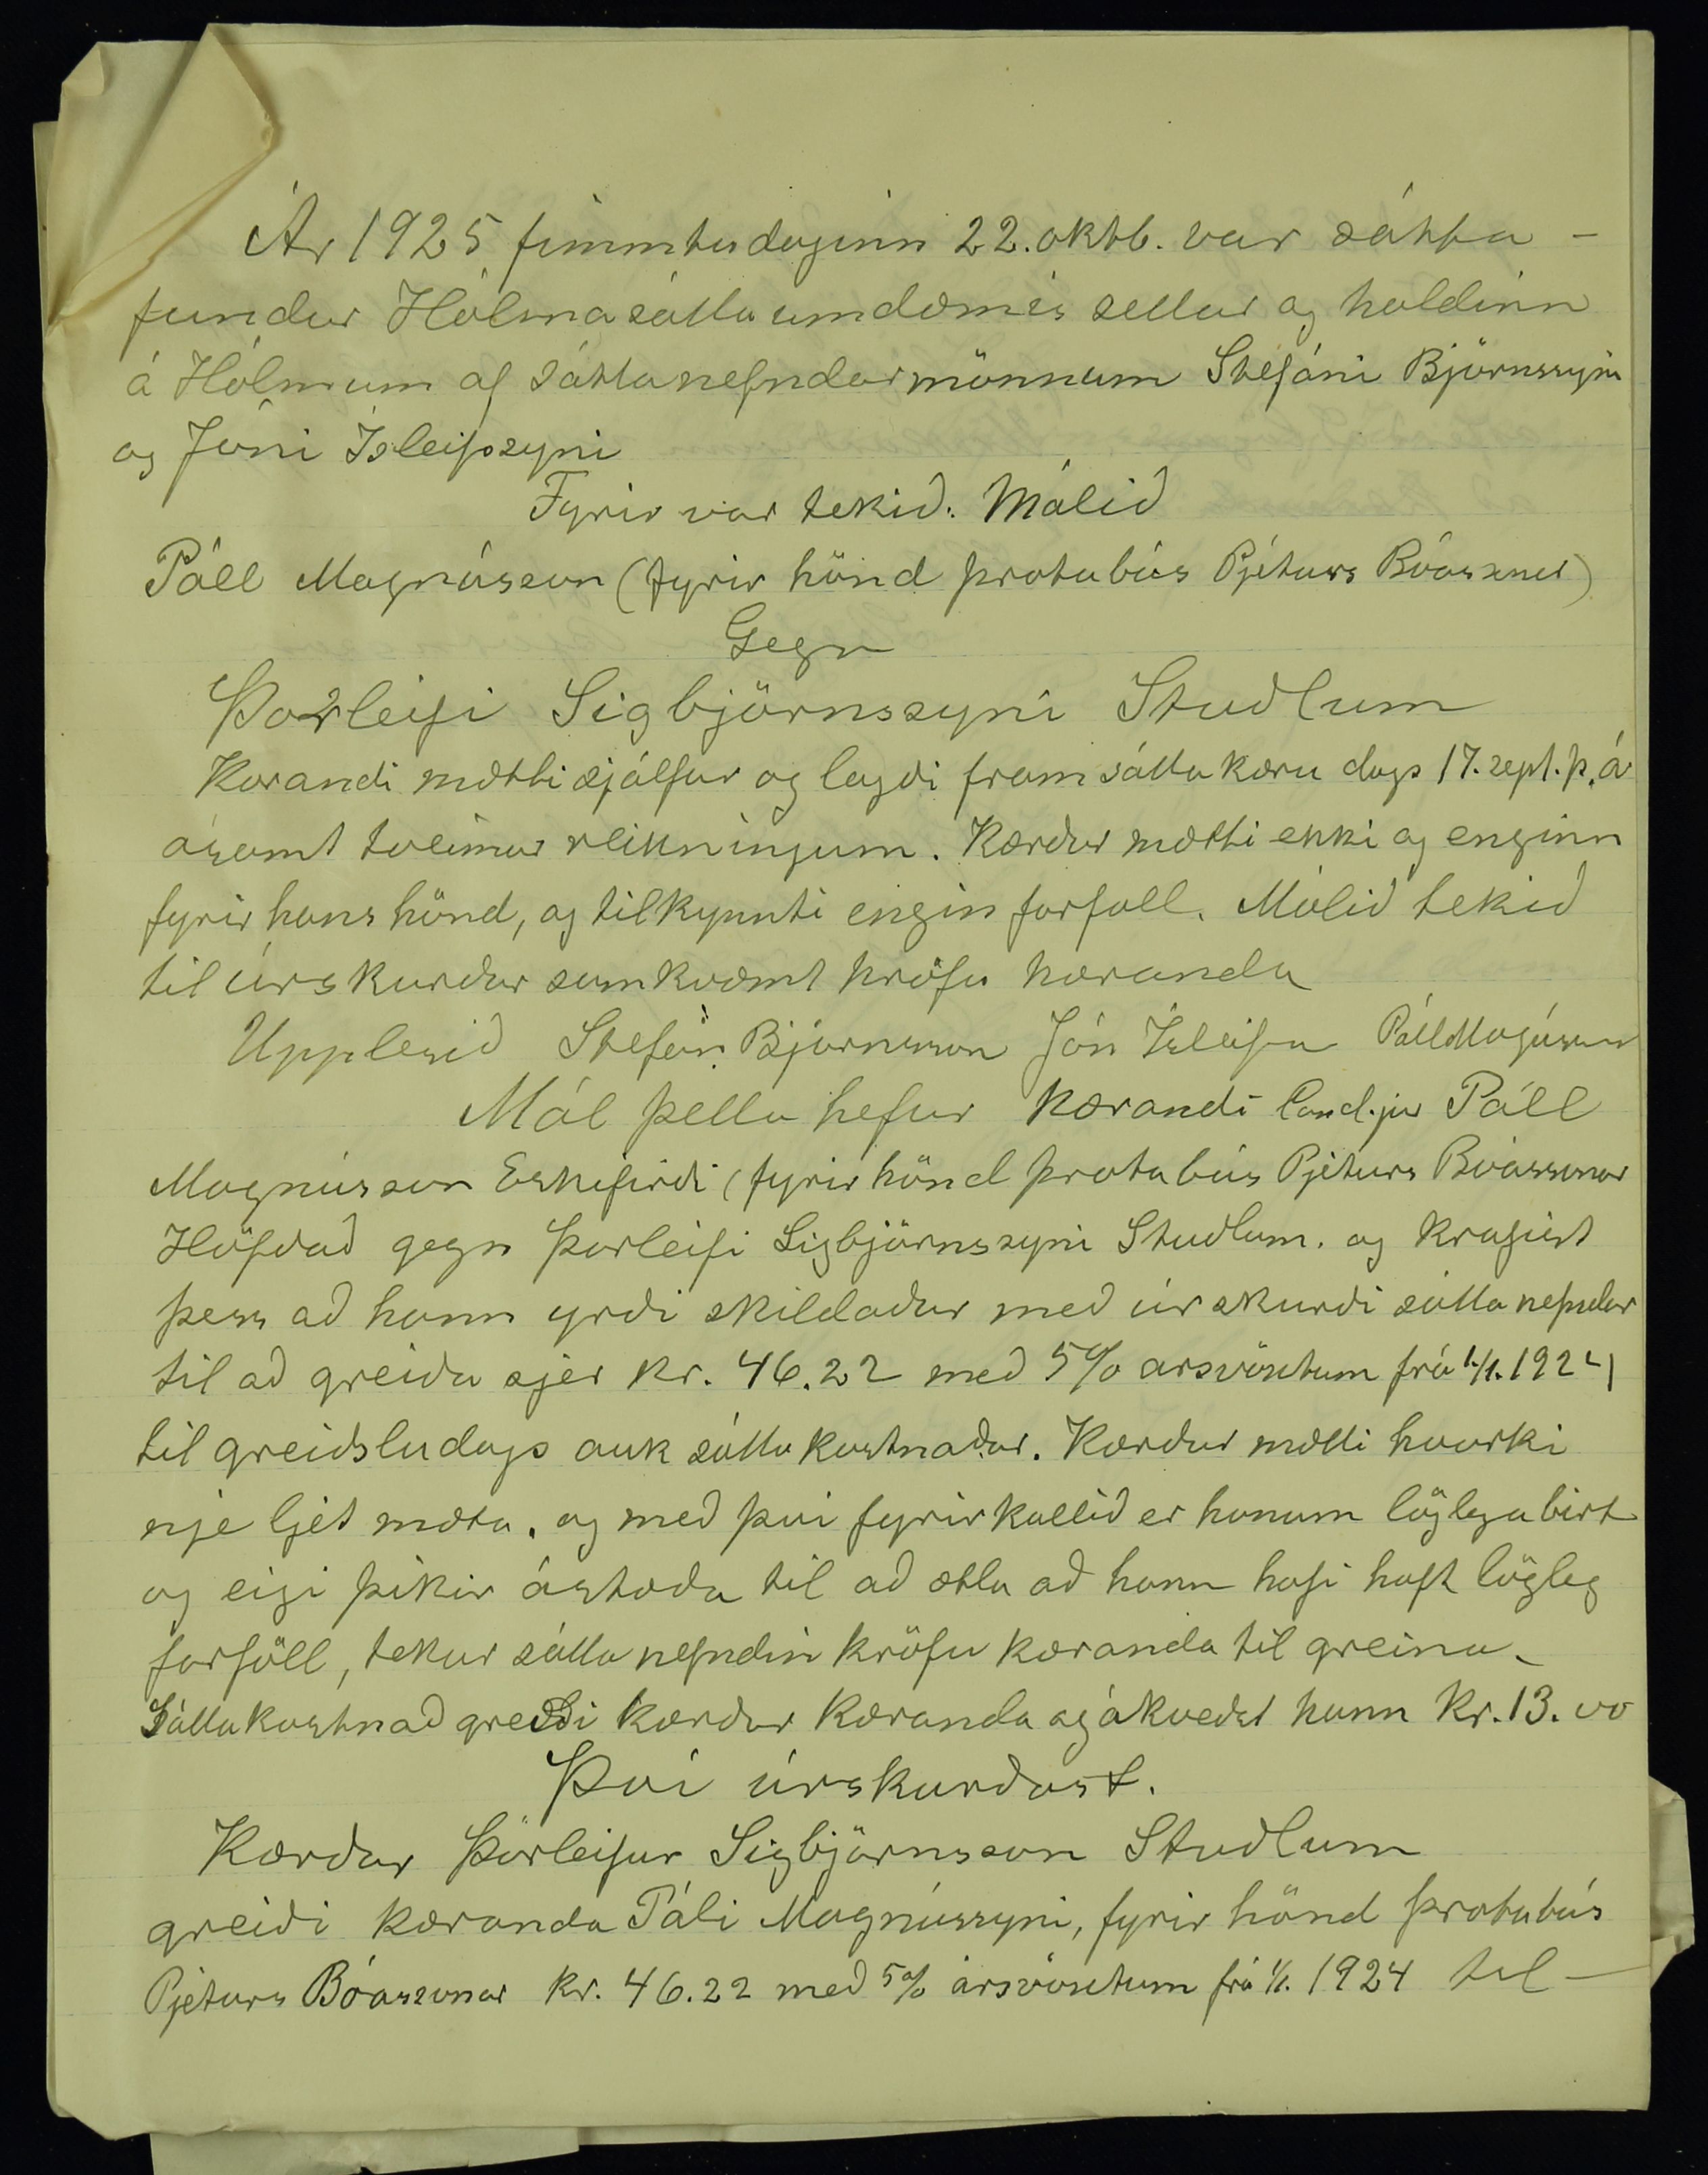 Ár 1925 fimmtudaginn 22. oktb. var sátta –
fundur Hólmasáttaumdæmis settur og haldinn
á Hólmum af sáttanefndarmönnum Stefáni Björnssyni
og Jóni Ísleifssyni
Fyrir var tekið. Málið
Páll Magnússon (fyrir hönd þrotabús Pjeturs Bóassonar)
Gegn
Þorleifi Sigbjörnssyni Stuðlum
Kærandi mætti sjálfur og lagði fram sáttakæru dags 17. sept. þ. á
ásamt tveimur reikningum. Kærður mætti ekki og enginn
fyrir hans hönd, og tilkynnti engin forföll. Málið tekið
til úrskurðar samkvæmt kröfu kæranda
Upplesið Stefán Björnsson Jón Ísleifss Páll Magnússon
Mál þetta hefur kærandi Cand. jur Páll
Magnússon Eskifirði (fyrir hönd þrotabús Pjeturs Bóassonar
Höfðað gegn Þorleifi Sigbjörnssyni Stuðlum. og krafist
þess að hann yrði skildaður með úrskurði sáttanefndar
til að greiða sjer kr. 46.22 með 5% arsvöxtum frá 1/1. 1924
til greiðsludags auk sáttakostnaðar. Kærður mætti hvorki
nje ljet mæta. og með því fyrirkallið er honum löglega birt
og eigi þikir ástæða til að ætla að hann hafi haft lögleg
forföll, tekur sáttanefndin kröfu kæranda til greina.
Sáttakostnað greiði kærður kæranda og ákveðst hann kr. 13.00
Því úrskurðast.
Kærður Þorleifur Sigbjörnsson Stuðlum
greiði kæranda Páli Magnússyni, fyrir hönd þrotabús
Pjeturs Bóassonar kr. 46.22 með 5% ársvöxtum frá 1/1. 1924 til –